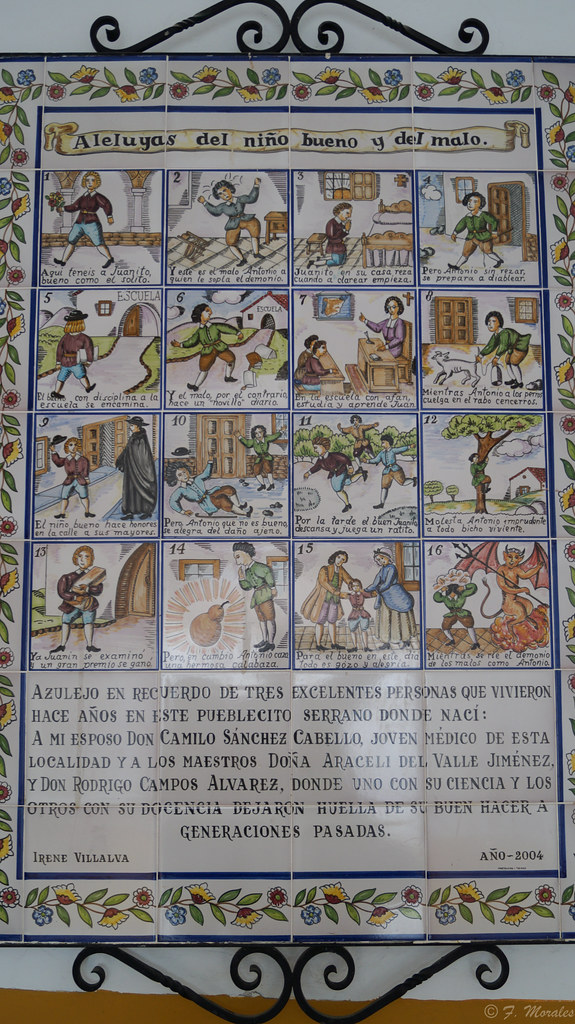 Aleluyas del niño bueno y del malo.
1
Aquí teneis a Juanito,
bueno como él solito.
2
Y este es el malo Antonio a
quien le sopla el demonio.
3
Juanito en su casa reza
cuando a clarear empieza.
4
Pero Antonio sin rezar,
se prepara a diablear.
5
ESCUELA
El bueno con disciplina a la
escuela se encamina.
6
ESCUELA
Y el malo, por el contrario,
hace un "novillo" diario.
7
En la escuela con afán,
estudia y aprende Juan.
8
Mientras Antonio a los perros
cuelga en el rabo cencerros.
9
El niño bueno hace honores
en la calle a sus mayores.
10
Pero Antonio que no es bueno,
se alegra del daño ajeno.
11
Por la tarde el buen Juanito
descansa y juega un ratito.
12
Molesta Antonio imprudente
a todo bicho viviente.
13
Ya Juanín se examinó,
un gran premio se ganó.
14
Pero en cambio Antonio caza
una hermosa calabaza.
15
Para el bueno en este día
todo es gozo y alegría.
16
Mientras, se ríe el demonio
de los malos como Antonio
Azulejo en recuerdo de tres excelentes personas que vivieron
hace años en este pueblecito serrano donde nací:
A mi esposo Don Camilo Sánchez Cabello, joven médico de esta
localidad y a los maestros Doña Araceli del Valle Jiménez,
y Don Rodrigo Campos Alvarez, donde uno con su ciencia y los
otros con su docencia dejaron huella de su buen hacer a
generaciones pasadas.
Irene Villalva
AÑO-2004
© F. Morales